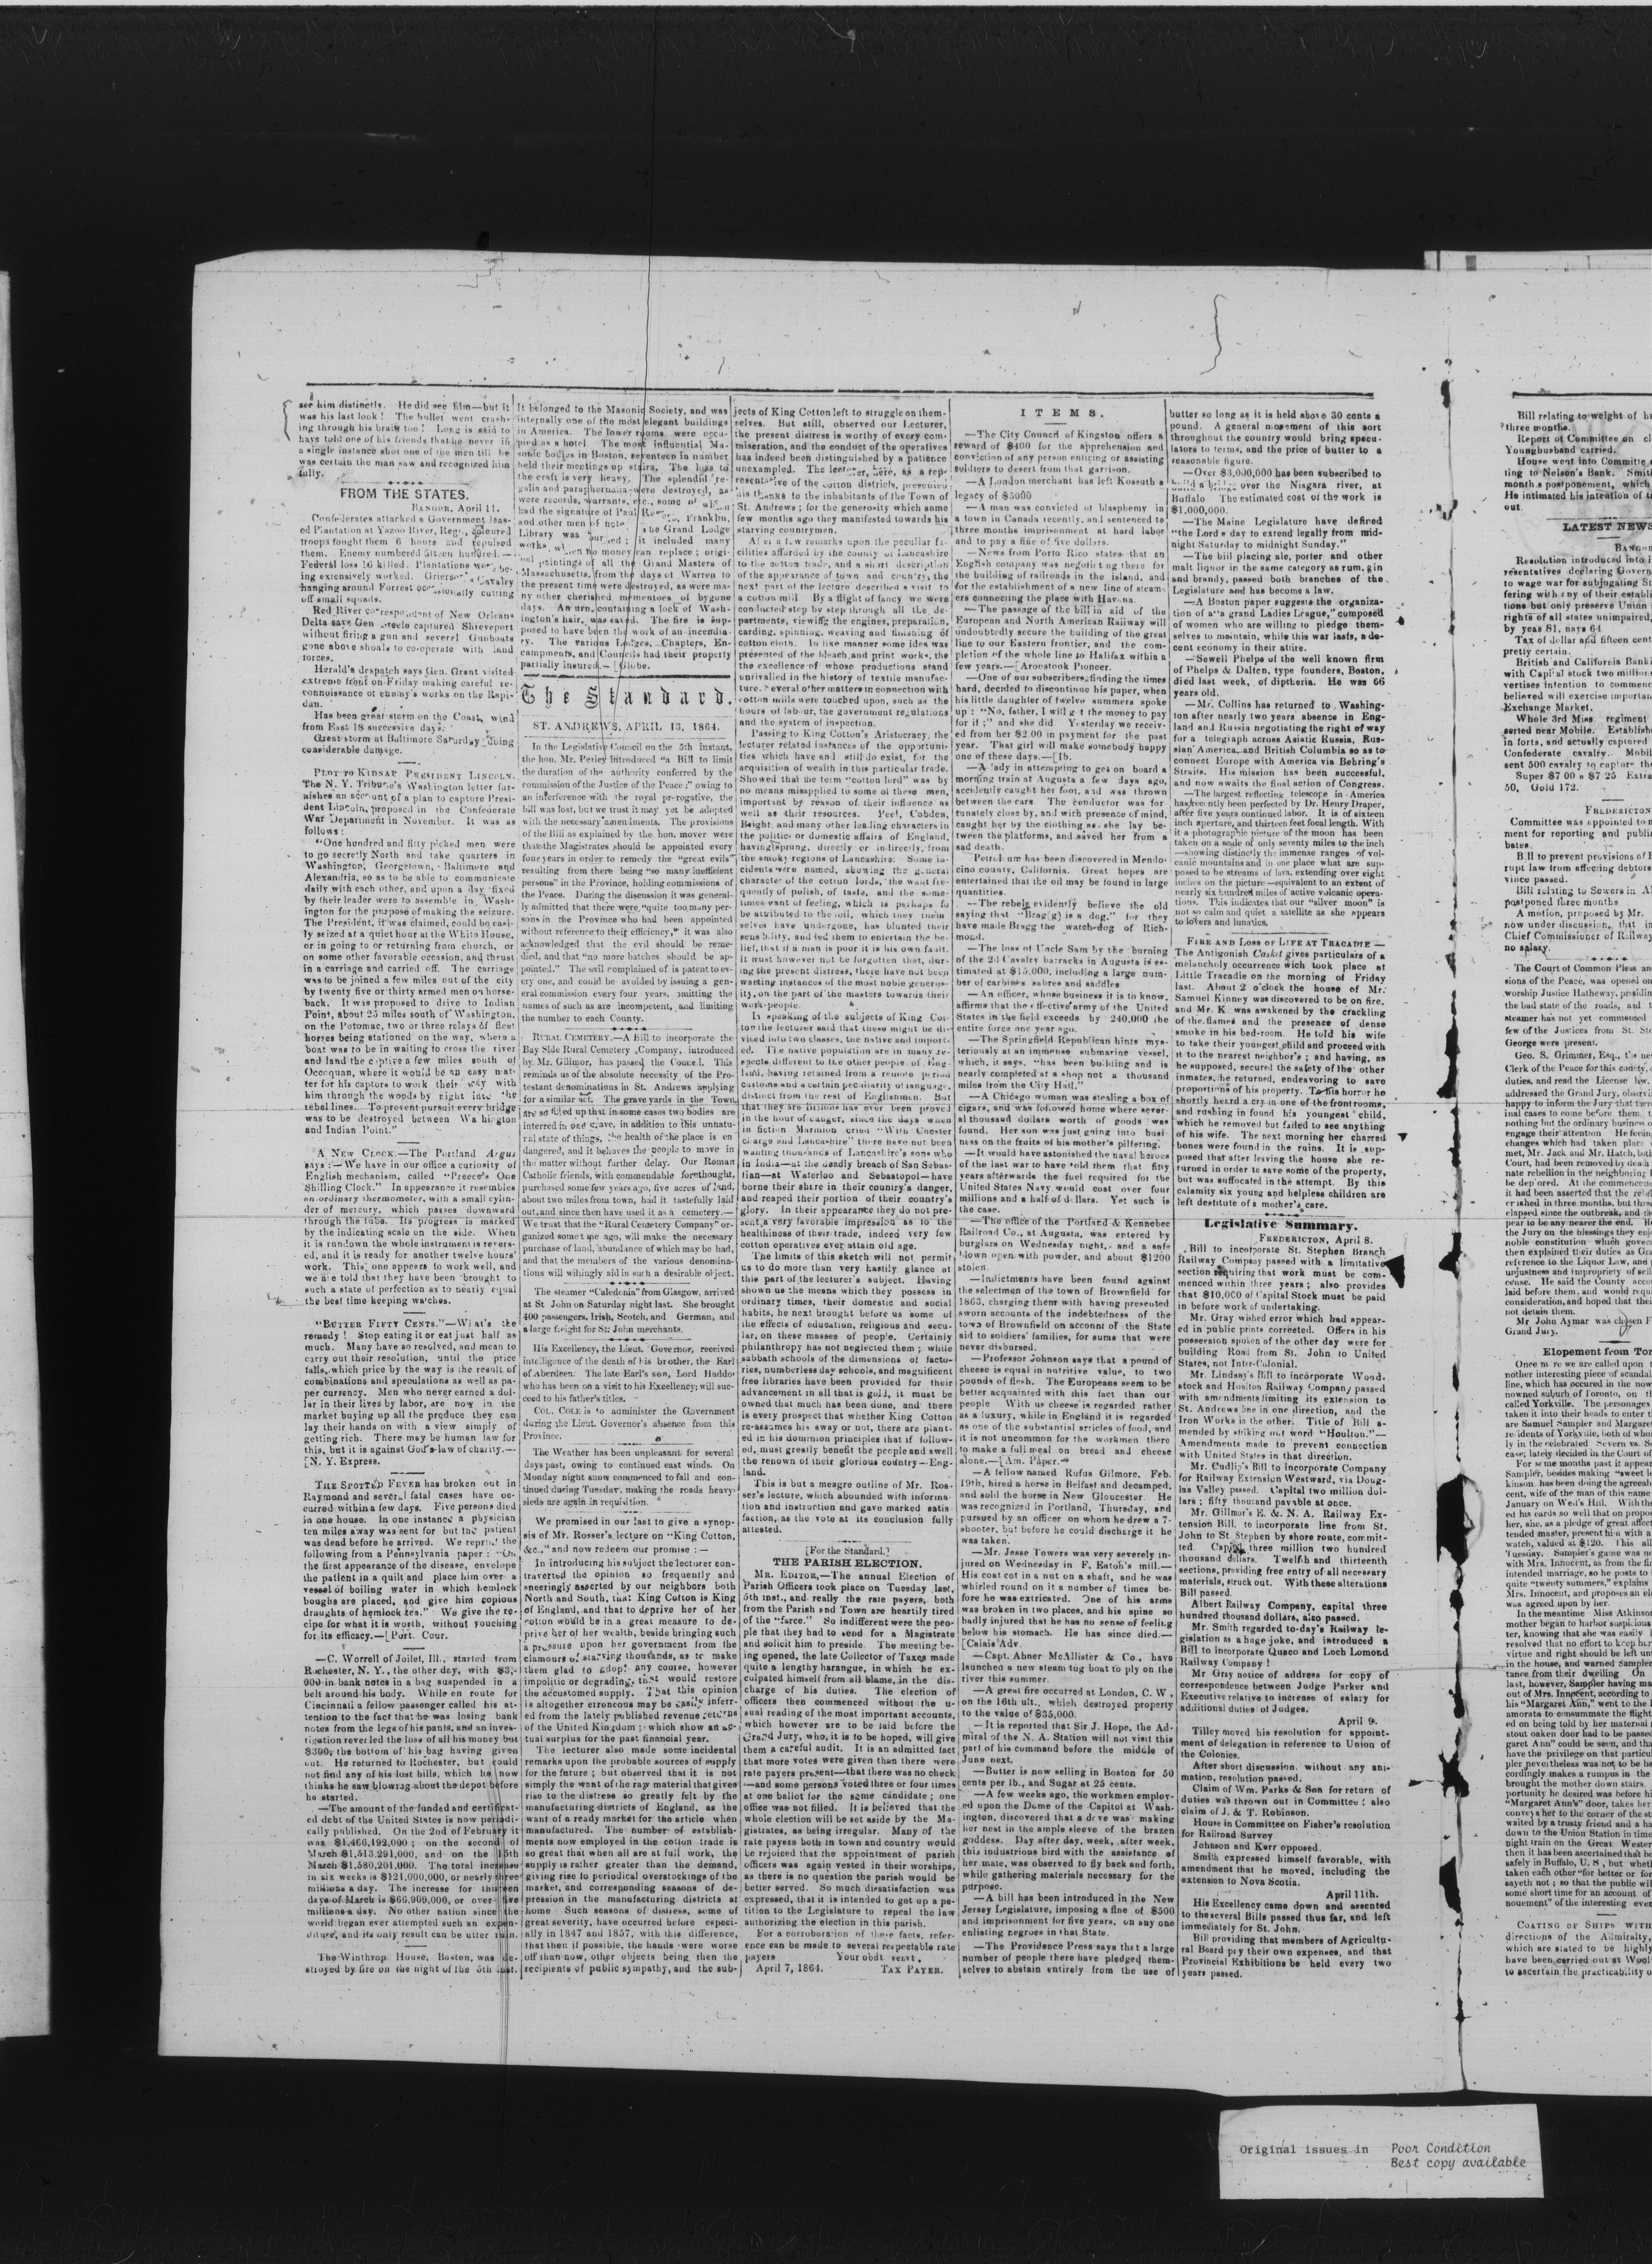 see him distinctly. He did see him—but it
was his last look! The bullet went crash-
ing through his brain too! Long is said to
have told one of his friends that he never in
a single instance shot one of the men till he
was certain the man saw and recognized him
fully.
FROM THE STATES.
BANGOR, April 11.
Confederates attacked a Government leas-
ed Plantation at Yazoo River, Regt., coloured
troops fought them 6 hours and repulsed
them. Enemy numbered fifteen hundred.—
Federal loss 16 killed. Plantations were be-
ing extensively worked. Grierson's Cavalry
hanging around Forrest occasionally cutting
off small squads.
Red River correspondent of New Orleans
Delta says Gen Steele captured Shreveport
without firing a gun and several Gunboats
gone above shoals to co-operate with land
forces.
Herald's despatch says Gen. Grant visited
extreme front on Friday making careful re-
connoissance of enemy's works on the Rapi-
dan.
Has been great storm on the Coast, wind
from East 18 successive days.
Great storm at Baltimore Saturday doing
considerable damage.
PLOT TO KIDNAP PRESIDENT LINCOLN.
The N. Y. Tribune's Washington letter fur-
nishes an account of a plan to capture Presi-
dent Lincoln, proposed in the Confederate
War Department in November. It was as
follows:
"One hundred and fifty picked men were
to go secretly North and take quarters in
Washington, Georgetown, Baltimore and
Alexandria, so as to be able to communicate
daily with each other, and upon a day fixed
by their leader were to assemble in Wash-
ington for the purpose of making the seizure.
The President, it was claimed, could be easi-
ly seized at a quiet hour at the White House,
or in going to or returning from church, or
on some other favorable occasion, and thrust
in a carriage and carried off. The carriage
was to be joined a few miles out of the city
by twenty five or thirty armed men on horse-
back. It was proposed to drive to Indian
Point, about 25 miles south of Washington,
on the Potomac, two or three relays of fleet
horses being stationed on the way, where a
boat was to be in waiting to cross the river
and land the captive a few miles south of
Occoquan, where it would be an easy mat-
ter for his captors to work their way with
him through the woods by night into the
rebel lines. To prevent pursuit every bridge
was to be destroyed between Wa hington
and Indian Point."
A NEW CLOCK.—The Portland Argus
says:—We have in our office a curiosity of
English mechanism, called "Preece's One
Shilling Clock." In appearance it resembles
an ordinary thermometer, with a small cylin-
der of mercury, which passes downward
through the tube. Its progress is marked
by the indicating scale on the side. When
it is rundown the whole instrument is revers-
ed, and it is ready for another twelve hours'
work. This one appears to work well, and
we are told that they have been brought to
such a state of perfection as to nearly equal
the best time keeping watches.
"BUTTER FIFTY CENTS."—What's the
remedy! Stop eating it or eat just half as
much. Many have so resolved, and mean to
carry out their resolution, until the price
falls, which price by the way is the result of
combinations and speculations as well as pa-
per currency. Men who never earned a dol-
lar in their lives by labor, are now in the
market buying up all the produce they can
lay their hands on with a view simply of
getting rich. There may be human law for
this, but it is against God's law of charity.—
[N. Y. Express.
THE SPOTTED FEVER has broken out in
Raymond and several fatal cases have oc-
curred within a few days. Five persons died
in one house. In one instance a physician
ten miles away was sent for but the patient
was dead before he arrived. We reprint the
following from a Pennsylvania paper: "On
the first appearance of the disease, envelope
the patient in a quilt and place him over a
vessel of boiling water in which hemlock
boughs are placed, and give him copious
draughts of hemlock tea." We give the re-
cipe for what it is worth, without vouching
for its efficacy.—[Port. Cour.
—C. Worrell of Joilet, Ill., started from
Rochester, N. Y., the other day, with $3,-
000 in bank notes in a bag suspended in a
belt around his body. While en route for
Cincinnati a fellow passenger called his at-
tention to the fact that he was losing bank
notes from the legs of his pants, and an inves-
tigation revealed the loss of all his money but
$300, the bottom of his bag having given
out. He returned to Rochester, but could
not find any of his lost bills, which he now
thinks he saw blowing about the depot before
he started.
—The amount of the funded and certificat-
ed debt of the United States is now periodi-
cally published. On the 2nd of February it
was $1,466,192,000; on the second of
March $1,513,291,000, and on the 15th
March $1,580,201,000. The total increase
in six weeks is $121,000,000, or nearly three
millions a day. The increase for thirteen
days of March is $66,909,000, or over five
millions a day. No other nation since the
world began ever attempted such an expen-
diture, and its only result can be utter ruin.
The Winthrop House, Boston, was de-
stroyed by fire on the night of the 5th inst.
It belonged to the Masonic Society, and was
internally one of the most elegant buildings
in America. The lower rooms were occu-
pied as a hotel The most influential Ma-
sonic bodies in Boston, seventeen in number
held their meetings up stairs, The loss to
the craft is very heavy. The splendid re-
galia and paraphernalia were destroyed, as
were records, warrants, etc., some of which
had the signature of Paul Revere, Franklin,
and other men of note. The Grand Lodge
Library was burned; it included many
works which no money can replace; origi-
nal paintings of all the Grand Masters of
Massachusetts, from the days of Warren to
the present time were destroyed, as were ma-
ny other cherished mementoes of bygone
days. An urn, containing a lock of Wash-
ington's hair, was saved. The fire is sup-
posed to have been the work of an incendia-
ry. The various Lodges, Chapters, En-
campments, and Councils had their property
partially insured.—[Globe.
The Standard.
ST. ANDREWS, APRIL 13, 1864.
In the Legislative Council on the 5th instant,
the hon. Mr. Perley introduced "a Bill to limit
the duration of the authority conferred by the
commission of the Justice of the Peace;" owing to
an interference with the royal prerogative, the
bill was lost, but we trust it may yet be adopted
with the necessary amendments. The provisions
of the Bill as explained by the hon. mover were
that the Magistrates should be appointed every
four years in order to remedy the "great evils"
resulting from there being "so many inefficient
persons" in the Province, holding commissions of
the Peace. During the discussion it was general-
ly admitted that there were "quite too many per-
sons in the Province who had been appointed
without reference to their efficiency," it was also
acknowledged that the evil should be reme-
died, and that "no more batches should be ap-
pointed." The evil complained of is patent to ev-
ery one, and could be avoided by issuing a gen-
eral commission every four years, omitting the
names of such as are incompetent, and limiting
the number to each County.
RURAL CEMETERY.—A Bill to incorporate the
Bay Side Rural Cemetery Company, introduced
by Mr. Gillmor, has passed the Council. This
reminds us of the absolute necessity of the Pro-
testant denominations in St. Andrews applying
for a similar act. The grave yards in the Town,
are so filled up that in some cases two bodies are
interred in one grave, in addition to this unnatu-
ral state of things, the health of the place is en
dangered, and it behoves the people to move in
the matter without further delay. Our Roman
Catholic friends, with commendable forethought,
purchased some few years ago, five acres of land,
about two miles from town, had it tastefully laid
out, and since then have used it as a cemetery.—
We trust that the "Rural Cemetery Company" or-
ganized some time ago, will make the necessary
purchase of land, abundance of which may be had,
and that the members of the various denomina-
tions will willingly aid in such a desirable object.
The steamer "Caledonia" from Glasgow, arrived
at St John on Saturday night last. She brought
400 passengers, Irish, Scotch, and German, and
a large freight for St. John merchants.
His Excellency, the Lieut. Governor, received
intelligence of the death of his brother, the Earl
of Aberdeen. The late Earl's son, Lord Haddo
who has been on a visit to his Excellency; will suc-
ceed to his father's titles.
COL. COLE is to administer the Government
during the Lieut. Governor's absence from this
Province.
The Weather has been unpleasant for several
days past, owing to continued east winds. On
Monday night snow commenced to fall and con-
tinued during Tuesday, making the roads heavy;
sleds are again in requisition.
We promised in our last to give a synop-
sis of Mr. Rosser's lecture on "King Cotton,
&c.," and now redeem our promise:—
In introducing his subject the lecturer con-
traverted the opinion so frequently and
sneeringly asserted by our neighbors both
North and South, that King Cotton is King
of England, and that to deprive her of her
cotton would be in a great measure to de-
prive her of her wealth, beside bringing such
a pressure upon her government from the
clamours of starving thousands, as to make
them glad to adopt any course, however
impolitic or degrading, that would restore
the accustomed supply. That this opinion
is altogether erroneous may be easily inferr-
ed from the lately published revenue returns
of the United Kingdom; which show an ac-
tual surplus for the past financial year.
The lecturer also made some incidental
remarks upon the probable sources of supply
for the future; but observed that it is not
simply the want of the raw material that gives
rise to the distress so greatly felt by the
manufacturing districts of England, as the
want of a ready market for the article when
manufactured. The number of establish-
ments now employed in the cotton trade is
so great that when all are at full work, the
supply is rather greater than the demand,
giving rise to periodical overstockings of the
market, and corresponding seasons of de-
pression in the manufacturing districts at
home Such seasons of distress, some of
great severity, have occurred before especi-
ally in 1847 and 1857, with this difference,
that then if possible, the hands were worse
off than now, other objects being then the
recipients of public sympathy, and the sub-
jects of King Cotton left to struggle on them-
relves. But still, observed our Lecturer,
the present distress is worthy of every com-
miseration, and the conduct of the operatives
has indeed been distinguished by a patience
unexampled. The lecturer, here, as a rep-
resentative of the cotton districts, presented
his thanks to the inhabitants of the Town of
St. Andrews; for the generosity which some
few months ago they manifested towards his
starving countrymen.
After a few remarks upon the peculiar fa-
cilities afforded by the county of Lancashire
to the cotton trade, and a short description
of the appearance of town and country, the
next part of the lecture described a visit to
a cotton mill. By a flight of fancy we were
conducted step by step through all the de-
partments, viewing the engines, preparation,
carding, spinning, weaving and finishing of
cotton cloth. In like manner some idea was
presented of the bleach and print works, the
the excellence of whose productions stand
unrivalled in the history of textile manufac-
ture. Several other matters in connection with
cotton mills were touched upon, such as the
hours of labour, the government regulations
and the system of inspection.
Passing to King Cotton's Aristocracy, the
lecturer related instances of the opportuni-
ties which have and still do exist, for the
acquisition of wealth in this particular trade.
Showed that the term "cotton lord" was by
no means misapplied to some of these men,
important by reason of their influence as
well as their resources. Peel, Cobden,
Bright, and many other leading characters in
the politics or domestic affairs of England,
having sprung, directly or indirectly, from
the smoky regions of Lancashire. Some in-
cidents were named, showing the general
character of the cotton lords, the want fre-
quently of polish, of taste, and the some-
times want of feeling, which is perhaps to
be attributed to the toil, which they them
selves have undergone, has blunted their
sensibility, and led them to entertain the be-
lief, that if a man is poor it is his own fault.
It must however not be forgotten that, dur-
ing the present distress, there have not been
wanting instances of the most noble generos-
ity, on the part of the masters towards their
work-people.
In speaking of the subjects of King Cot-
ton the lecturer said that these might be di-
vided into two classes, the native and import-
ed. The native population are in many re-
spects different to the other people of Eng-
land, having retained from a remote period
customs and a certain peculiarity of language,
distinct from the rest of Englishmen. But
that they are Britons has ever been proved
in the hour of danger, since the days when
in fiction Marmion cried "With Chester
charge and Lancashire" there have not been
wanting thousands of Lancashire's sons who
in India—at the deadly breach of San Sebas-
tian—at Waterloo and Sebastopol—have
borne their share in their country's danger,
and reaped their portion of their country's
glory. In their appearance they do not pre-
sent a very favorable impression as to the
healthiness of their trade, indeed very few
cotton operatives ever attain old age.
The limits of this sketch will not permit
us to do more than very hastily glance at
this part of the lecturer's subject. Having
shown us the means which they possess in
ordinary times, their domestic and social
habits, he next brought before us some of
the effects of education, religious and secu-
lar, on these masses of people. Certainly
philanthropy has not neglected them; while
sabbath schools of the dimensions of facto-
ries, numberless day schools, and magnificent
free libraries have been provided for their
advancement in all that is good, it must be
owned that much has been done, and there
is every prospect that whether King Cotton
re-assumes his sway or not, there are plant-
ed in his dominion principles that if follow-
ed, must greatly benefit the people and swell
the renown of their glorious country—Eng-
land.
This is but a meagre outline of Mr. Ros-
ser's lecture, which abounded with informa-
tion and instruction and gave marked satis-
faction, as the vote at its conclusion fully
attested.
[For the Standard.]
THE PARISH ELECTION.
MR. EDITOR,—The annual Election of
Parish Officers took place on Tuesday last,
5th inst., and really the rate payers, both
from the Parish and Town are heartily tired
of the "farce." So indifferent were the peo-
ple that they had to send for a Magistrate
and solicit him to preside. The meeting be-
ing opened, the late Collector of Taxes made
quite a lengthy harangue, in which he ex-
culpated himself from all blame, in the dis-
charge of his duties. The election of
officers then commenced without the u-
sual reading of the most important accounts,
which however are to be laid before the
Grand Jury, who, it is to be hoped, will give
them a careful audit. It is an admitted fact
that more votes were given than there were
rate payers present—that there was no check
—and some persons voted three or four times
at one ballot for the same candidate; one
office was not filled. It is believed that the
whole election will be set aside by the Ma-
gistrates, as being irregular. Many of the
rate payers both in town and country would
be rejoiced that the appointment of parish
officers was again vested in their worships,
as there is no question the parish would be
better served. So much dissatisfaction was
expressed, that it is intended to get up a pe-
tition to the Legislature to repeal the law
authorizing the election in this parish.
For a corroboration of these facts, refer-
ence can be made to several respectable rate
payers Your obdt. servt,
April 7, 1864. TAX PAYER.
ITEMS.
—The City Council of Kingston offers a
reward of $400 for the apprehension and
conviction of any person enticing or assisting
soldiers to desert from that garrison.
—A London merchant has left Kossuth a
legacy of $5000
—A man was convicted of blasphemy in
a town in Canada recently, and sentenced to
three months imprisonment at hard labor
and to pay a fine of five dollars.
—News from Porto Rico states that an
English company was negotiating there for
the building of railroads in the island, and
for the establishment of a new line of steam-
ers connecting the place with Havana.
—The passage of the bill in aid of the
European and North American Railway will
undoubtedly secure the building of the great
line to our Eastern frontier, and the com-
pletion of the whole line to Halifax within a
few years.—[Aroostook Pioneer.
—One of our subscribers, finding the times
hard, decided to discontinue his paper, when
his little daughter of twelve summers spoke
up: "No, father, I will get the money to pay
for it;" and she did Yesterday we receiv-
ed from her $2.00 in payment for the past
year. That girl will make somebody happy
one of these days.—[Ib.
—A lady in attempting to get on board a
morning train at Augusta a few days ago,
accidently caught her foot, and was thrown
between the cars The conductor was for
tunately close by, and with presence of mind,
caught her by the clothing as she lay be-
tween the platforms, and saved her from a
sad death.
Petroleum has been discovered in Mendo-
cino county, California. Great hopes are
entertained that the oil may be found in large
quantities.
—The rebels evidently believe the old
saying that "Brag(g) is a dog," for they
have made Bragg the watch-dog of Rich-
mond.
—The loss of Uncle Sam by the burning
of the 2d Cavalry barracks in Augusta is es-
timated at $15,000, including a large num-
ber of carbines sabres and saddles
—An officer, whose business it is to know,
affirms that the effective army of the United
States in the field exceeds by 240,000 the
entire force one year ago.
—The Springfield Republican hints mys-
teriously at an immense submarine vessel,
which, it says, "has been building and is
nearly completed at a shop not a thousand
miles from the City Hall."
—A Chicago woman was stealing a box of
cigars, and was followed home where sever-
al thousand dollars worth of goods was
found. Her son was just going into busi-
ness on the fruits of his mother's pilfering.
—It would have astonished the naval heroes
of the last war to have told them that fifty
years afterwards the fuel required for the
United States Navy would cost over four
millions and a half of dollars. Yet such is
the case.
—The office of the Portland & Kennebec
Railroad Co., at Augusta, was entered by
burglars on Wednesday night, and a safe
blown open with powder, and about $1200
stolen.
—Indictments have been found against
the selectmen of the town of Brownfield for
1863, charging them with having presented
sworn accounts of the indebtedness of the
town of Brownfield on account of the State
aid to soldiers' families, for sums that were
never disbursed.
—Professor Johnson says that a pound of
cheese is equal in nutritive value, to two
pounds of flesh. The Europeans seem to be
better acquainted with this fact than our
people With us cheese is regarded rather
as a luxury, while in England it is regarded
as one of the substantial articles of food, and
it is not uncommon for the workmen there
to make a full meal on bread and cheese
alone.—[Am. Paper.
—A fellow named Rufus Gilmore, Feb.
19th, hired a horse in Belfast and decamped,
and sold the horse in New Gloucester. He
was recognized in Portland, Thursday, and
pursued by an officer on whom he drew a 7-
shooter, but before he could discharge it he
was taken.
—Mr. Jesse Towers was very severely in-
jured on Wednesday in F. Eaton's mill.—
His coat cot in a nut on a shaft, and he was
whirled round on it a number of times be-
fore he was extricated. One of his arms
was broken in two places, and his spine so
badly injured that he has no sense of feeling
below his stomach. He has since died.—
[Calais Adv.
—Capt. Abner McAllister & Co., have
launched a new steam tug boat to ply on the
river this summer.
—A great fire occurred at London, C. W,
on the 16th ult., which destroyed property
to the value of $35,000.
—It is reported that Sir J. Hope, the Ad-
miral of the N. A. Station will not visit this
part of his command before the middle of
June next.
—Butter is now selling in Boston for 50
cents per lb., and Sugar at 25 cents.
—A few weeks ago, the workmen employ-
ed upon the Dome of the Capitol at Wash-
ington, discovered that a dove was making
her nest in the ample sleeve of the brazen
goddess. Day after day, week, after week,
this industrious bird with the assistance of
her mate, was observed to fly back and forth,
while gathering materials necessary for the
purpose.
—A bill has been introduced in the New
Jersey Legislature, imposing a fine of $500
and imprisonment for five years, on any one
enlisting negroes in that State.
—The Providence Press says that a large
number of people there have pledged them-
selves to abstain entirely from the use of
butter so long as it is held above 30 cents a
pound. A general movement of this sort
throughout the country would bring specu-
lators to terms, and the price of butter to a
reasonable figure.
—Over $3,000,000 has been subscribed to
build a bridge over the Niagara river, at
Buffalo The estimated cost of the work is
$1,000,000.
—The Maine Legislature have defined
"the Lord s day to extend legally from mid-
night Saturday to midnight Sunday."
—The bill placing ale, porter and other
malt liquor in the same category as rum, gin
and brandy, passed both branches of the
Legislature and has become a law.
—A Boston paper suggests the organiza-
tion of a "a grand Ladies League," composed
of women who are willing to pledge them-
selves to maintain, while this war lasts, a de-
cent economy in their attire.
—Sewell Phelps of the well known firm
of Phelps & Dalten, type founders, Boston,
died last week, of diptheria. He was 66
years old.
—Mr. Collins has returned to Washing-
ton after nearly two years absence in Eng-
land and Russia negotiating the right of way
for a telegraph across Asiatic Russia, Rus-
sian America, and British Columbia so as to
connect Europe with America via Behring's
Straits. His mission has been successful,
and now awaits the final action of Congress.
—The largest reflecting telescope in America
has recently been perfected by Dr. Henry Draper,
after five years continued labor. It is of sixteen
inch aperture, and thirteen feet focal length. With
it a photographic picture of the moon has been
taken on a scale of only seventy miles to the inch
—showing distinctly the immense ranges of vol-
canic mountains and in one place what are sup-
posed to be streams of lava, extending over eight
inches on the picture—equivalent to an extent of
nearly six hundred miles of active volcanic opera-
tions. This indicates that our "silver moon" is
not so calm and quiet a satellite as she appears
to lovers and lunatics.
FIRE AND LOSS OF LIFE AT TRACADIE—
The Antigonish Casket gives particulars of a
melancholy occurrence wich took place at
Little Tracadie on the morning of Friday
last. About 2 o'clock the house of Mr.
Samuel Kinney was discovered to be on fire,
and Mr. K was awakened by the crackling
of the flames and the presence of dense
smoke in his bed-room. He told his wife
to take their youngest child and proceed with
it to the nearest neighbor's; and having, as
he supposed, secured the safety of the other
inmates, he returned, endeavoring to save
proportions of his property. To his horror he
shortly heard a cry in one of the frontrooms,
and rushing in found his youngest child,
which he removed but failed to see anything
of his wife. The next morning her charred
bones were found in the ruins. It is sup-
posed that after leaving the house she re-
turned in order to save some of the property,
but was suffocated in the attempt. By this
calamity six young and helpless children are
left destitute of a mother's care.
Legislative Summary.
FREDERICTON, April 8.
Bill to incorporate St. Stephen Branch
Railway Company passed with a limitative
section requiring that work must be com-
menced within three years; also provides
that $10,000 of Capital Stock must be paid
in before work of undertaking.
Mr. Gray wished error which had appear-
ed in public prints corrected. Offers in his
possession spoken of the other day were for
building Road from St. John to United
States, not Inter-Colonial.
Mr. Lindsay's Bill to incorporate Wood-
stock and Houlton Railway Company passed
with amendments limiting its extension to
St. Andrews line in one direction, and the
Iron Works in the other. Title of Bill a-
mended by striking out word "Houlton."—
Amendments made to prevent connection
with United States in that direction.
Mr. Cudlip's Bill to incorporate Company
for Railway Extension Westward, via Doug-
las Valley passed. Capital two million dol-
lars; fifty thousand payable at once.
Mr. Gillmor's E. & N. A. Railway Ex-
tension Bill, to incorporate line from St.
John to St Stephen by shore route, commit-
ted. Capital three million two hundred
thousand dollars. Twelfth and thirteenth
sections, providing free entry of all necessary
materials, struck out. With these alterations
Bill passed.
Albert Railway Company, capital three
hundred thousand dollars, also passed.
Mr. Smith regarded to-day's Railway le-
gislation as a huge joke, and introduced a
Bill to incorporate Quaco and Loch Lomond
Railway Company!
Mr Gray notice of address for copy of
correspondence between Judge Parker and
Executive relative to increase of salary for
additional duties of Judges.
April 9.
Tilley moved his resolution for appoint-
ment of delegation in reference to Union of
the Colonies.
After short discussion, without any ani-
mation, resolution passed.
Claim of Wm. Parks & Son for return of
duties was thrown out in Committee; also
claim of J. & T. Robinson.
House in Committee on Fisher's resolution
for Railroad Survey
Johnson and Kerr opposed.
Smith expressed himself favorable, with
amendment that he moved, including the
extension to Nova Scotia.
April 11th.
His Excellency came down and assented
to the several Bills passed thus far, and left
immediately for St. John.
Bill providing that members of Agricultu-
ral Board pay their own expenses, and that
Provincial Exhibitions be held every two
years passed.
Bill relating to weight of
three months.
Report of Committee on
Younghusband carried.
House went into Committee
ting to Nelson's Bank. Smith
month s postponement, which
He intimated his intention of
out.
LATEST NEWS
Resolution introduced into
resentatives declaring Govern
to wage war for subjugating
fering with any of their establi
tions but only preserve Union
rights of all states unimpaired,
by yeas 81, nays 64
Tax of dollar and fifteen cent
pretty certain.
British and California Banki
with Capital stock two million
vertises intention to commenc
believed will exercise importan
Exchange Market.
Whole 3rd Miss. regiment
serted near Mobile. Establish
in forts, and actually captured
Confederate cavalry. Mobil
sent 500 cavalry to capture the
Super $7 00 a $7 25 Extra
50, Gold 172.
FREDERICTON
Committee was appointed to
ment for reporting and publi
bates.
Bill to prevent provisions of
rupt law from affecting debtors
vince passed.
Bill relating to Sewers in
postponed three months
A motion, proposed by Mr.
now under discussion, that in
Chief Commissioner of Railway
no salary.
The Court of Common Pleas an
sions of the Peace, was opened on
worship Justice Hatheway, presidin
the bad state of the roads, and
steamer has not yet commenced
few of the Justices from St. Ste
George were present.
Geo. S. Grimmer, Esq., the
Clerk of the Peace for this county,
duties, and read the License law.
addressed the Grand Jury, observi
happy to inform the Jury that there
inal cases to come before them,
nothing but the ordinary business
engage their attention He feeling
changes which had taken place
met, Mr. Jack and Mr. Hatch, both
Court, had been removed by death
nate rebellion in the neighboring
be deplored. At the commencement
it had been asserted that the
crished in three months, but three
elapsed since the outbreak, and
pear to be any nearer the end. He
the Jury on the blessings they enj
noble constitution which govern
then explained their duties as Gra
reference to the Liquor Law, and
unjustness and impropriety of sell
cense. He said the County acco
laid before them, and would requ
consideration, and hoped that thei
not detain them.
Mr John Aymar was chosen F
Grand Jury.
Elopement from Tor
Once more we are called upon
nother interesting piece of scandal
line, which has occured in the now
nowned suburb of Toronto, on
called Yorkville. The personages
taken it into their heads to enter
are Samuel Sampler and Margaret
residents of Yorkville, both of who
ly in the celebrated Severn vs.
case; lately decided in the Court of
For some months past it appear
Sampler, besides making "sweet
kinson. has been doing the agreeab
cent, wife of the man of this name
January on Weel's Hill. With the
ed his cards so well that on propos
her, she, as a pledge of great affect
tended master, present him with a
watch, valued at $120. This all
Tuesday. Sampler's game was
with Mrs. Innocent, as from the
intended marriage, so he posts to
quite "twenty summers," explains
Mrs. Innocent, and proposes an
was agreed upon by her.
In the meantime Miss Atkinson
mother began to harbor suspicious
ter, knowing that she was easily
resolved that no effort to keep her
virtue and right should be left un
in the house, and warned Sampler
tance from their dwelling On
last, however, Sampler having ma
out of Mrs. Innocent, according to
his "Margaret Ann," went to the
amorata to consummate the flight
ed on being told by her maternal
stout oaken door had to be passed
garet Ann" could be seen, and tha
have the privilege on that particu
pler nevertheless was not to be ba
cordingly makes a rumpus in the
brought the mother down stairs.
portunity he desired was before hi
"Margaret Ann's" door, takes her
conveys her to the corner of the st
waited by a trusty friend and a ha
down to the Union Station in time
night train on the Great Wester
then it has been ascertained that
safely in Buffalo, U. S, but wheth
taken each other "for better or for
sayeth not; so that the public wil
some short time for an account of
nouement" of the interesting even
COATING OF SHIPS WITH
directions of the Admiralty,
which are stated to be highly
have been carried out at Wool
to ascertain the practicability
Original issues in Poor Condition
Best copy available